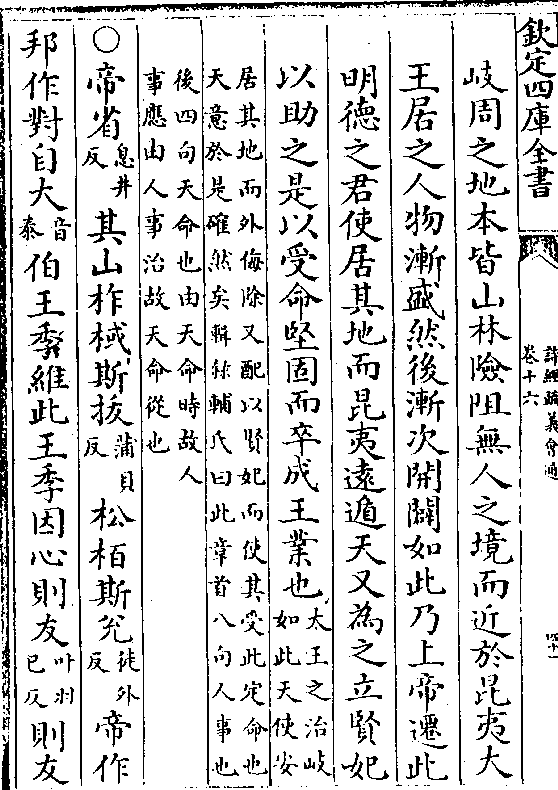 欽定四庫全書
詩經疏義會通
卷十六
四十一
岐周之地本皆山林險阻無人之境而近於昆夷大
王居之人物漸盛然後漸次開闢如此乃上帝遷此
明德之君使居其地而昆夷遠遁天又為之立賢妃
以助之是以受命堅固而卒成王業也大王之治岐
如此天使安
居其地而外侮除又配以賢妃而使其受此定命也
天意於是確然矣輯錄輔氏曰此章首八句人事也
後四句天命也由天命時故人
事應由人事治故天命從也
○帝省息井反其山柞棫斯拔蒲貝反松栢斯兊徒外反帝作
邦作對自大音泰伯王季維此王季因心則友叶羽已反則友